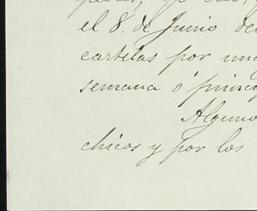 el 8. de Junio de
cartitas por una
semana ó princi
Alguno
chicos y por los